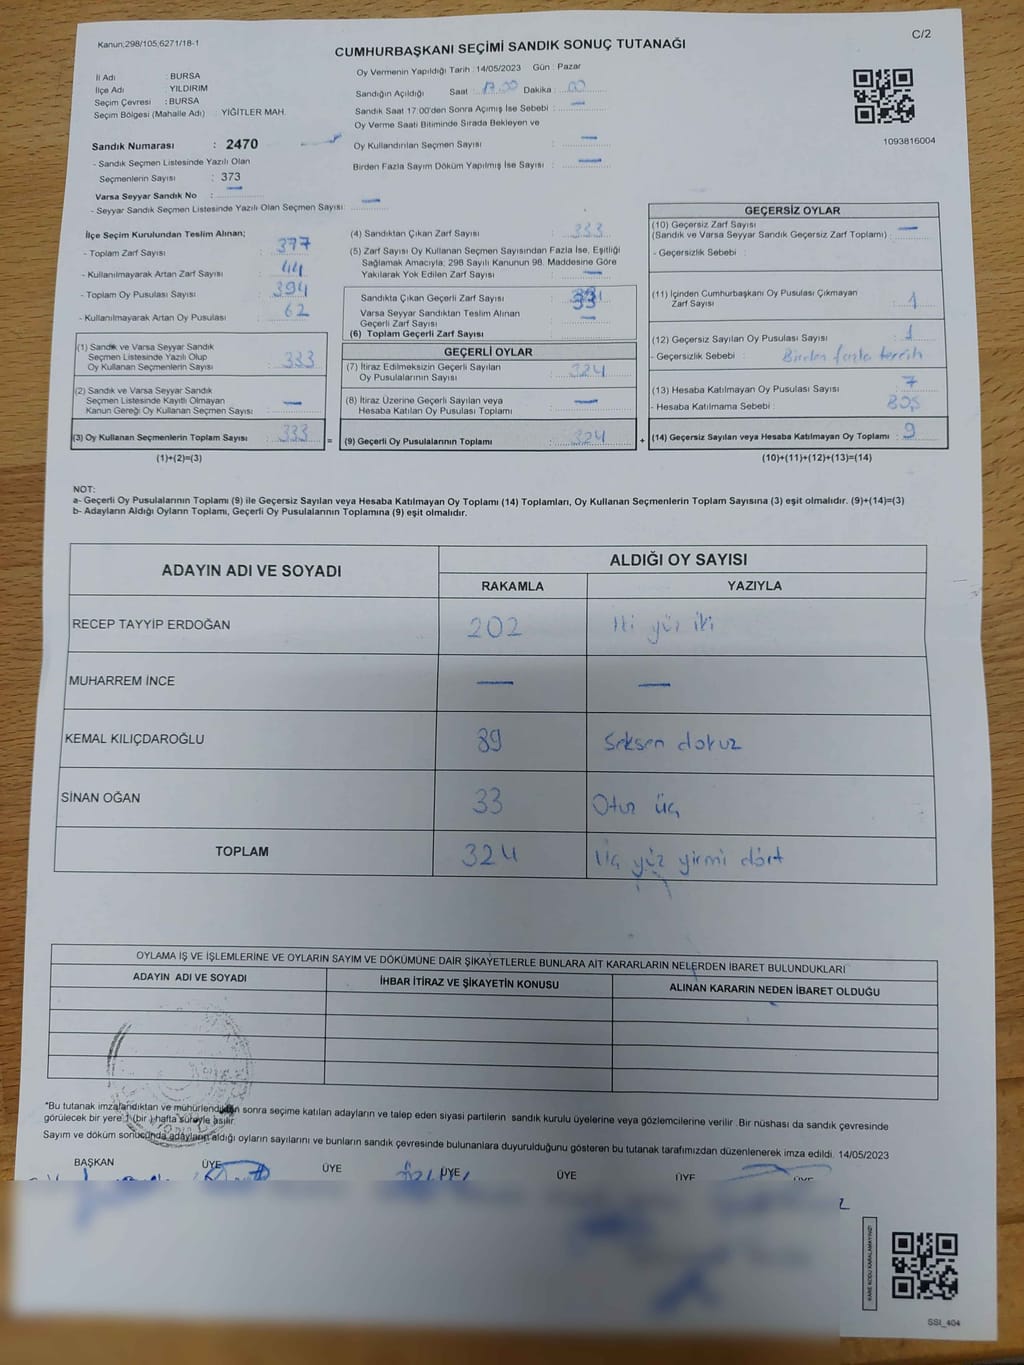 Kanun;298/105;6271/18-1
CUMHURBAŞKANI SEÇİMİ SANDIK SONUÇ TUTANAĞI
C/2
İl Adı : BURSA
İlçe Adı : YILDIRIM
Seçim Çevresi : BURSA
Seçim Bölgesi (Mahalle Adı) : YİĞİTLER MAH.
Sandık Numarası : 2470
- Sandık Seçmen Listesinde Yazılı Olan
Seçmenlerin Sayısı : 373
Varsa Seyyar Sandık No : —
- Seyyar Sandık Seçmen Listesinde Yazılı Olan Seçmen Sayısı: —
Oy Vermenin Yapıldığı Tarih : 14/05/2023 Gün : Pazar
Sandığın Açıldığı Saat : 17.00 Dakika : 00
Sandık Saat 17:00'den Sonra Açımış İse Sebebi : —
Oy Verme Saati Bitiminde Sırada Bekleyen ve
Oy Kullandırılan Seçmen Sayısı : —
Birden Fazla Sayım Döküm Yapılmış İse Sayısı : —
1093816004
İlçe Seçim Kurulundan Teslim Alınan;
- Toplam Zarf Sayısı : 377
- Kullanılmayarak Artan Zarf Sayısı : 44
- Toplam Oy Pusulası Sayısı : 394
- Kullanılmayarak Artan Oy Pusulası : 62
(1) Sandık ve Varsa Seyyar Sandık
Seçmen Listesinde Yazılı Olup
Oy Kullanan Seçmenlerin Sayısı : 333
(2) Sandık ve Varsa Seyyar Sandık
Seçmen Listesinde Kayıtlı Olmayan
Kanun Gereği Oy Kullanan Seçmen Sayısı : —
(3) Oy Kullanan Seçmenlerin Toplam Sayısı : 333
(1)+(2)=(3)
=
(4) Sandıktan Çıkan Zarf Sayısı : 333
(5) Zarf Sayısı Oy Kullanan Seçmen Sayısından Fazla İse, Eşitliği
Sağlamak Amacıyla; 298 Sayılı Kanunun 98. Maddesine Göre
Yakılarak Yok Edilen Zarf Sayısı : —
Sandıkta Çıkan Geçerli Zarf Sayısı :
Varsa Seyyar Sandıktan Teslim Alınan
Geçerli Zarf Sayısı : —
(6) Toplam Geçerli Zarf Sayısı
GEÇERLİ OYLAR
(7) İtiraz Edilmeksizin Geçerli Sayılan
Oy Pusulalarının Sayısı : 324
(8) İtiraz Üzerine Geçerli Sayılan veya
Hesaba Katılan Oy Pusulası Toplamı : —
(9) Geçerli Oy Pusulalarının Toplamı : 324
+
GEÇERSİZ OYLAR
(10) Geçersiz Zarf Sayısı
(Sandık ve Varsa Seyyar Sandık Geçersiz Zarf Toplamı) : —
- Geçersizlik Sebebi :
(11) İçinden Cumhurbaşkanı Oy Pusulası Çıkmayan
Zarf Sayısı : 1
(12) Geçersiz Sayılan Oy Pusulası Sayısı : 1
- Geçersizlik Sebebi : Birden fazla tercih
(13) Hesaba Katılmayan Oy Pusulası Sayısı : 7
- Hesaba Katılmama Sebebi : BOŞ
(14) Geçersiz Sayılan veya Hesaba Katılmayan Oy Toplamı : 9
(10)+(11)+(12)+(13)=(14)
NOT:
a- Geçerli Oy Pusulalarının Toplamı (9) ile Geçersiz Sayılan veya Hesaba Katılmayan Oy Toplamı (14) Toplamları, Oy Kullanan Seçmenlerin Toplam Sayısına (3) eşit olmalıdır. (9)+(14)=(3)
b- Adayların Aldığı Oyların Toplamı, Geçerli Oy Pusulalarının Toplamına (9) eşit olmalıdır.
ADAYIN ADI VE SOYADI ALDIĞI OY SAYISI
RAKAMLA YAZIYLA
RECEP TAYYİP ERDOĞAN 202 iki yüz iki
MUHARREM İNCE — —
KEMAL KILIÇDAROĞLU 89 Seksen dokuz
SİNAN OĞAN 33 Otuz üç
TOPLAM 324 Üç yüz yirmi dört
OYLAMA İŞ VE İŞLEMLERİNE VE OYLARIN SAYIM VE DÖKÜMÜNE DAİR ŞİKAYETLERLE BUNLARA AİT KARARLARIN NELERDEN İBARET BULUNDUKLARI
ADAYIN ADI VE SOYADI İHBAR İTİRAZ VE ŞİKAYETİN KONUSU ALINAN KARARIN NEDEN İBARET OLDUĞU
*Bu tutanak imzalandıktan ve mühürlendikten sonra seçime katılan adayların ve talep eden siyasi partilerin sandık kurulu üyelerine veya gözlemcilerine verilir. Bir nüshası da sandık çevresinde
görülecek bir yere 1 (bir) hafta süreyle asılır.
Sayım ve döküm sonucunda adayların aldığı oyların sayılarını ve bunların sandık çevresinde bulunanlara duyurulduğunu gösteren bu tutanak tarafımızdan düzenlenerek imza edildi. 14/05/2023
BAŞKAN ÜYE ÜYE ÜYE ÜYE ÜYE ÜYE
KARE KODU KARALAMAYINIZ!
SSI_404